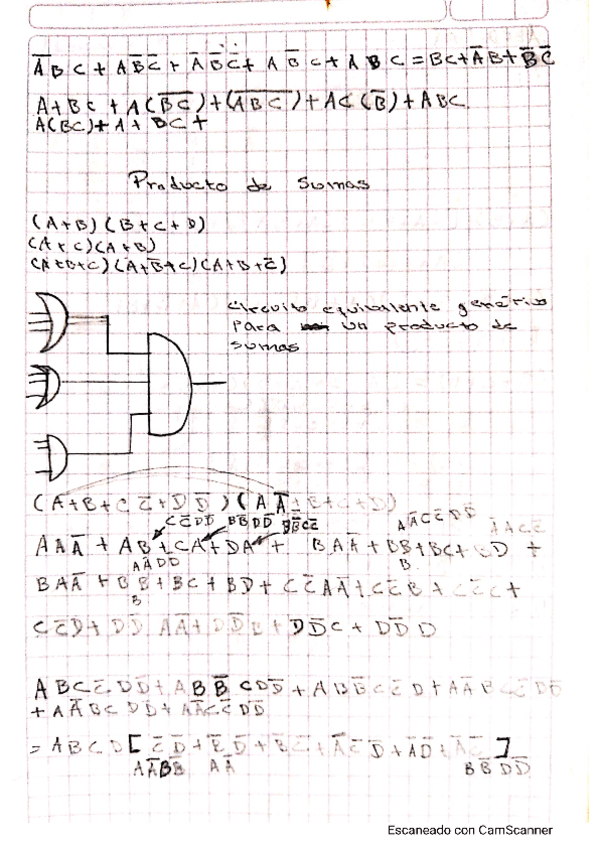 A̅BC + AB̅C̅ + A̅B̅C̅ + AB̅C + ABC = BC + A̅B + B̅C̅
A + BC + A(B̅C̅) + (A̅B̅C̅) + AC(B̅) + ABC
A(BC) + A + BC +
Producto de sumas
(A+B)(B+C+D)
(A+C)(A+B)
(A+B+C)(A+B̅+C)(A+B+C̅)
circuito equivalente genérico
para un producto de
sumas
(A+B+CC̅+DD̅)(AA̅+B+C+D)
CC̅DD̅ BB̅DD̅ BB̅CC̅ AA̅CC̅DD̅
AAA̅ + AB + CA + DA + BAA̅ + BB + BC + BD +
AA̅DD B
BAA̅ + BB + BC + BD + CC̅AA̅ + CC̅B + CC̅C +
B
CC̅D + DD̅AA̅ + DD̅B + DD̅C + DD̅D
ABCC̅DD̅ + ABB̅CDD̅ + ABB̅CC̅D + AA̅BCC̅DD̅
+ AA̅BCDD̅ + AA̅CC̅DD̅
= ABCD [C̅D̅ + B̅D̅ + B̅C̅ + A̅C̅D̅ + A̅D̅ + A̅C̅]
AA̅BB̅ AA̅ BB̅DD̅
Escaneado con CamScanner